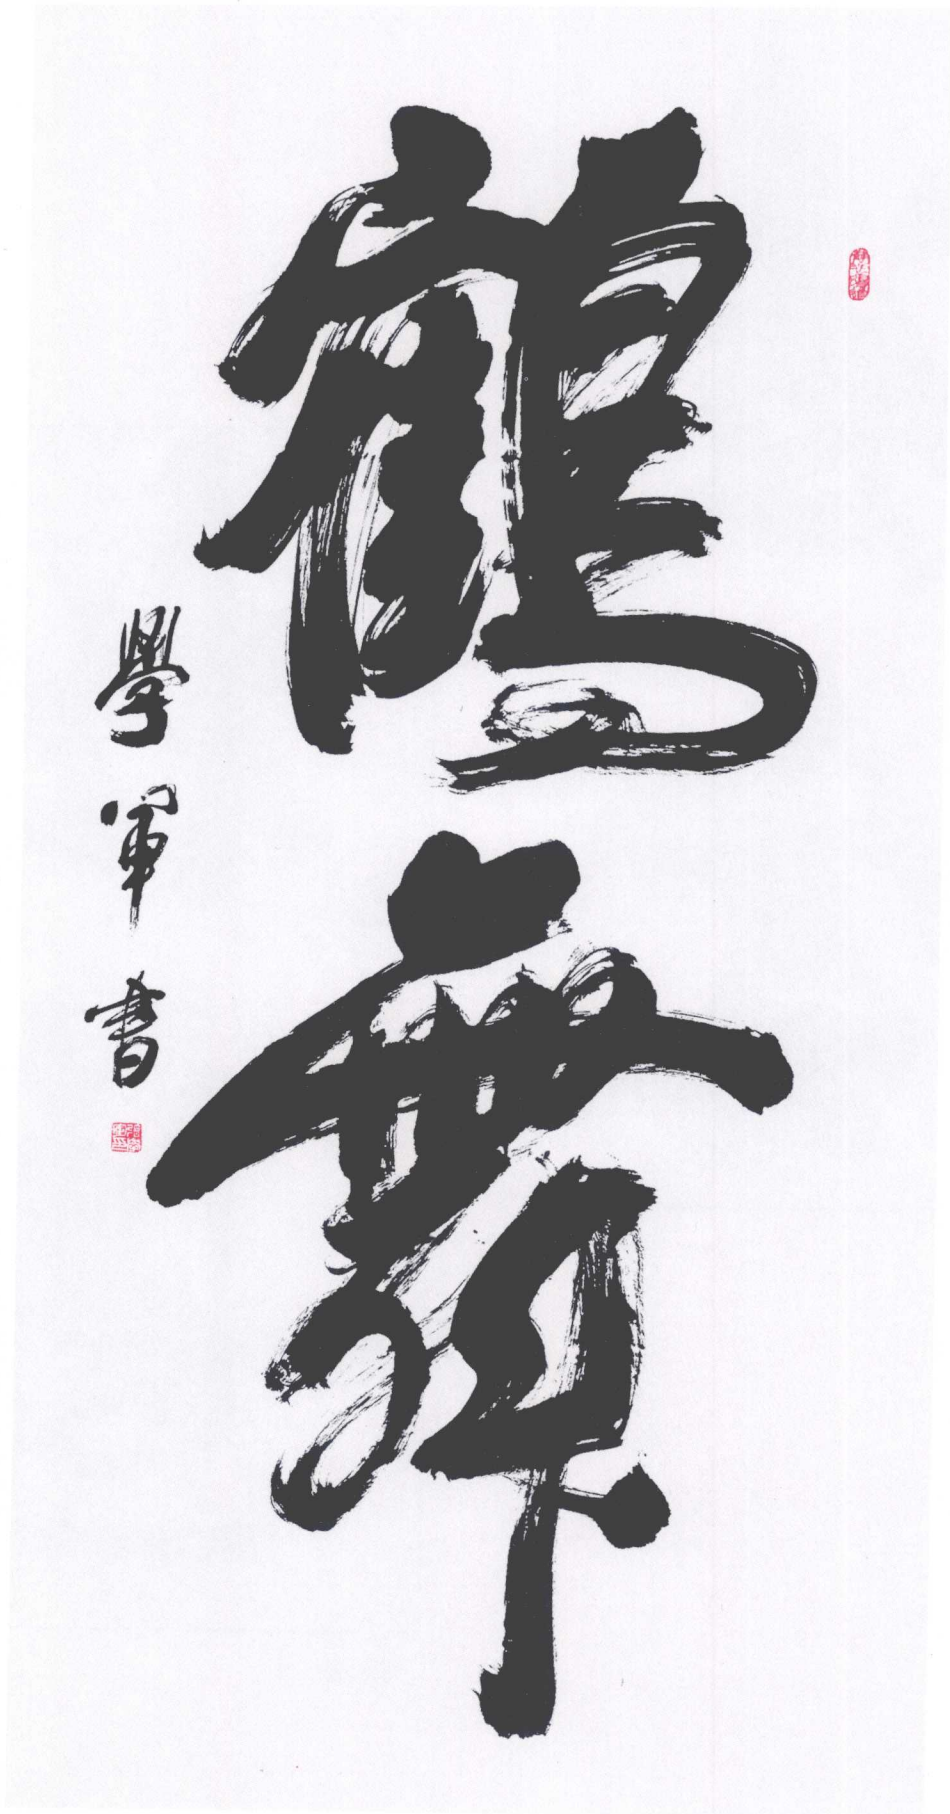 鶴舞
學軍書